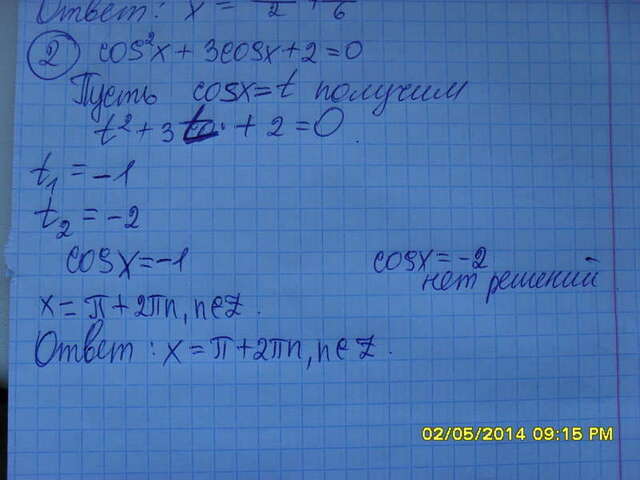 Ответ: x = /2 + /6
② cos²x + 3cosx + 2 = 0
Пусть cosx = t получим
t² + 3t + 2 = 0
t₁ = -1
t₂ = -2
cosx = -1 cosx = -2
нет решений
x = π + 2πn, n∈Z.
Ответ: x = π + 2πn, n∈Z.
02/05/2014 09:15 PM